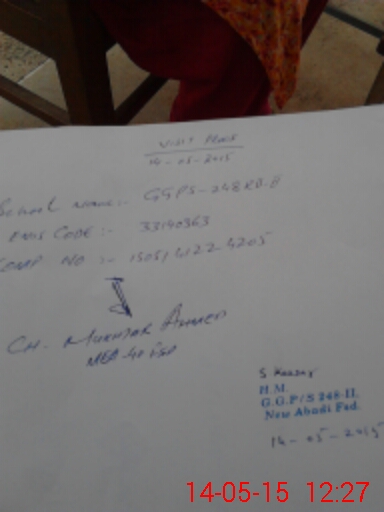 VISIT PROOF
14-05-2015
School name:- GGPS-248 RB-II
EMIS CODE:- 33140363
COMP NO:- 1505/4122-4205
CH. Mukhtar Ahmed
MEA-40 FSD
S Kausar
H.M.
G.G.P/S 248-II,
New Abadi Fsd.
14-05-2015
14-05-15 12:27